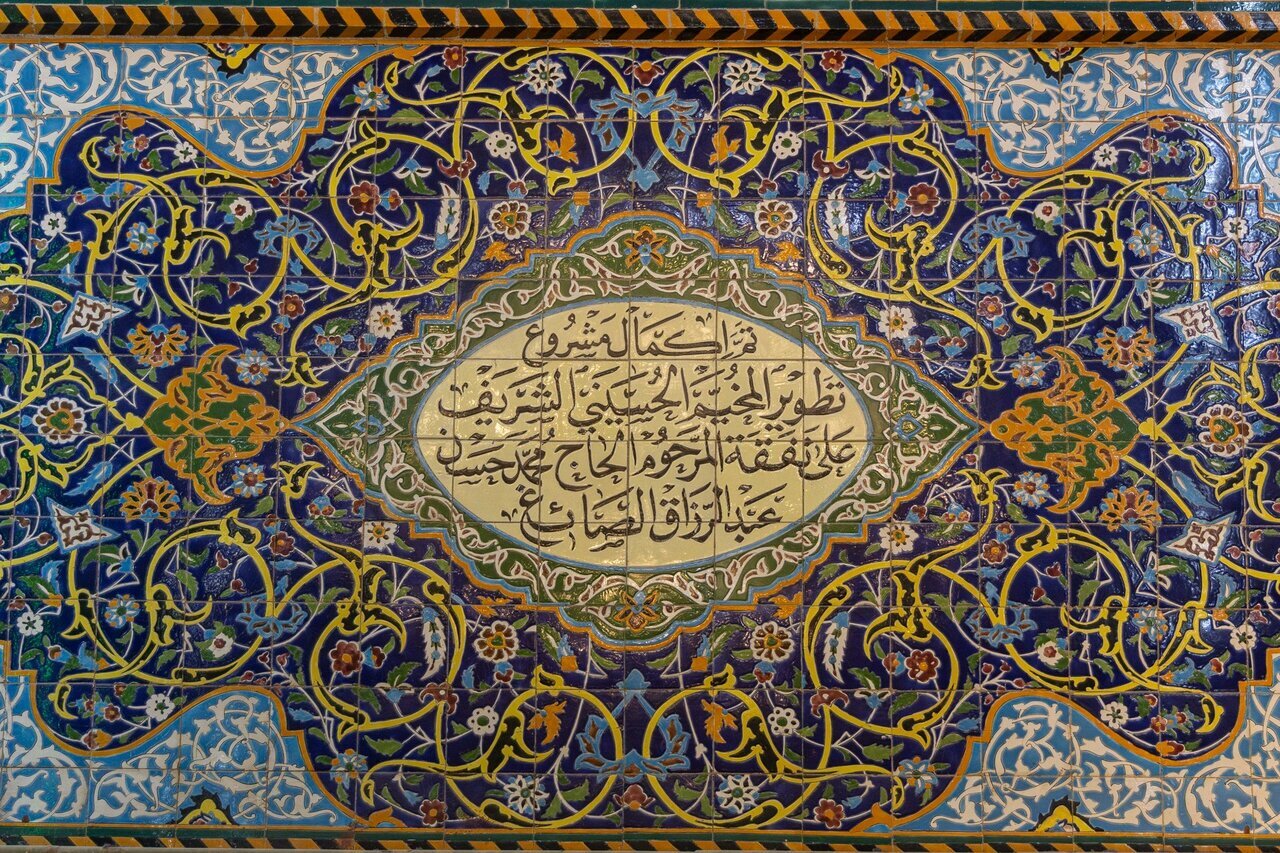 تم اكمال مَشرُوع
تطوير المُخيَّم الحُسَينيّ الشَريف
على نفقة المرحُوم الحاج محمّد حسَن
عَبد الرّزاق الصَائغ